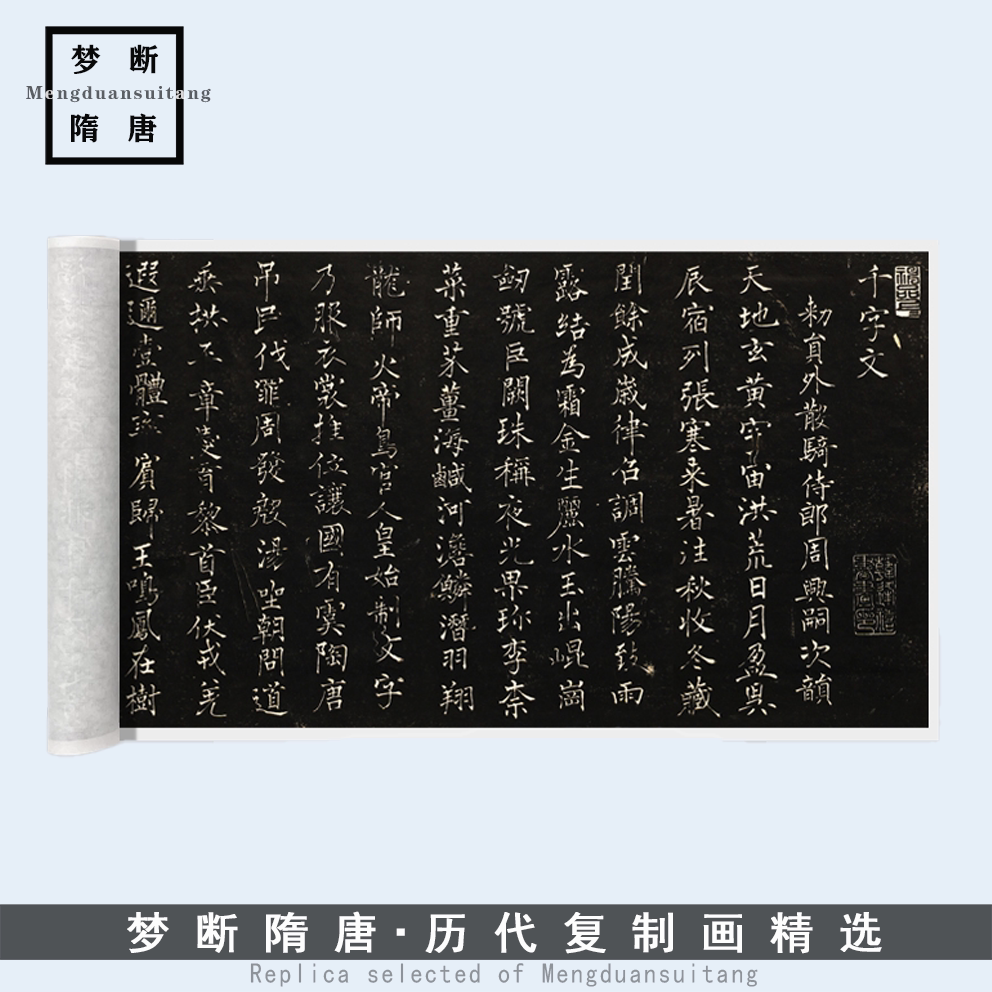 梦断
Mengduansuitang
隋唐
千字文
勅員外散騎侍郎周興嗣次韻
天地玄黃宇宙洪荒日月盈昃
辰宿列張寒来暑往秋收冬藏
閏餘成嵗律召調雲騰陽致雨
露結為霜金生麗水玉出崐崗
劒號巨闕珠稱夜光果珎李柰
菜重芥薑海鹹河淡鱗潛羽翔
龍師火帝鳥官人皇始制文字
乃服衣裳推位讓國有虞陶唐
吊民伐罪周發殷湯坐朝問道
垂拱平章愛育黎首臣伏戎羌
遐邇壹體率賓歸王鳴鳳在樹
梦断隋唐·历代复制画精选
Replica selected of Mengduansuitang